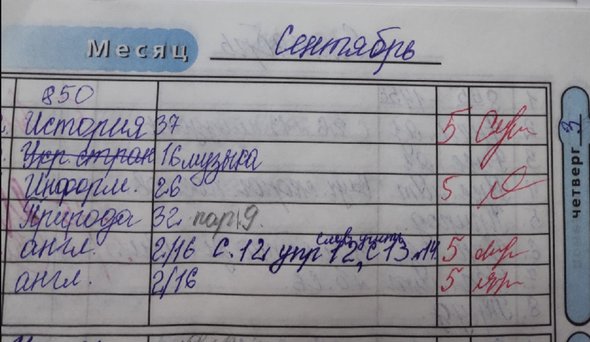 Месяц Сентябрь
850
История 37 5
Укр стран 16 музыка
Информ. 26 5
Природа 32 пар 9.
англ. 2/16 с. 12, упр 12, с 13 №14 5
слова учить
англ. 2/16 5
четверг 3